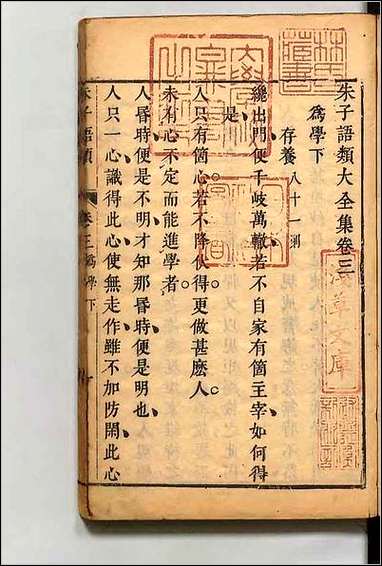 朱子語類大全集卷三
為學下
存養八十一測
纔出門便千岐萬轍若不自家有箇主宰如何得
是
人只有箇心若不降伏得更做甚麽人
未有心不定而能進學者
人昬時便是不明才知那昬時便是明也
人只一心識得此心使無走作雖不加防閑此心
朱子語類 卷三 為學下
林氏藏書
淺草文庫